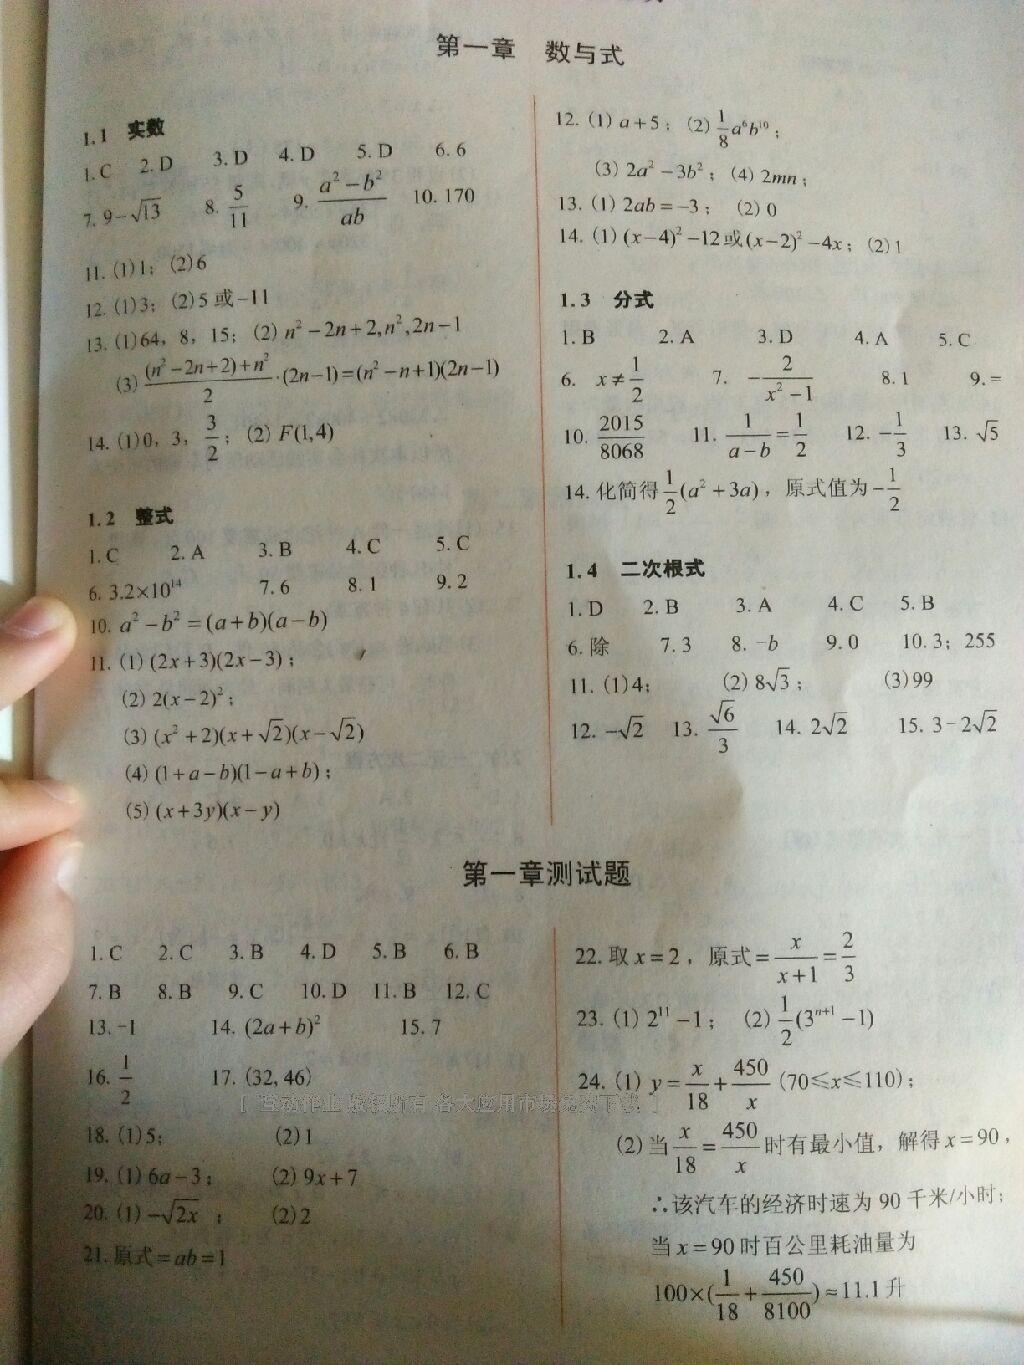 第一章 数与式
1.1 实数
1.C 2.D 3.D 4.D 5.D 6.6
7. 9-√13 8. 5/11 9. (a²-b²)/ab 10.170
11.(1)1；(2)6
12.(1)3；(2)5或-11
13.(1)64，8，15；(2) n²-2n+2,n²,2n-1
(3) ((n²-2n+2)+n²)/2·(2n-1)=(n²-n+1)(2n-1)
14.(1)0，3，3/2；(2) F(1,4)
1.2 整式
1.C 2.A 3.B 4.C 5.C
6. 3.2×10¹⁴ 7.6 8.1 9.2
10. a²-b²=(a+b)(a-b)
11.(1) (2x+3)(2x-3)；
(2) 2(x-2)²；
(3) (x²+2)(x+√2)(x-√2)
(4) (1+a-b)(1-a+b)；
(5) (x+3y)(x-y)
12.(1) a+5；(2) 1/8 a⁶b¹⁰；
(3) 2a²-3b²；(4) 2mn；
13.(1) 2ab=-3；(2) 0
14.(1) (x-4)²-12或(x-2)²-4x；(2)1
1.3 分式
1.B 2.A 3.D 4.A 5.C
6. x≠1/2 7. -2/(x²-1) 8.1 9.=
10. 2015/8068 11. 1/(a-b)=1/2 12. -1/3 13. √5
14.化简得1/2(a²+3a)，原式值为-1/2
1.4 二次根式
1.D 2.B 3.A 4.C 5.B
6.除 7.3 8.-b 9.0 10.3；255
11.(1)4； (2) 8√3； (3)99
12. -√2 13. √6/3 14. 2√2 15. 3-2√2
第一章测试题
1.C 2.C 3.B 4.D 5.B 6.B
7.B 8.B 9.C 10.D 11.B 12.C
13.-1 14. (2a+b)² 15.7
16. 1/2 17.(32,46)
18.(1)5； (2)1
19.(1) 6a-3； (2) 9x+7
20.(1) -√2x； (2)2
21.原式=ab=1
22.取x=2，原式=x/(x+1)=2/3
23.(1) 2¹¹-1；(2) 1/2(3ⁿ⁺¹-1)
24.(1) y=x/18+450/x (70≤x≤110)；
(2)当x/18=450/x时有最小值，解得x=90，
∴该汽车的经济时速为90千米/小时；
当x=90时百公里耗油量为
100×(1/18+450/8100)≈11.1升